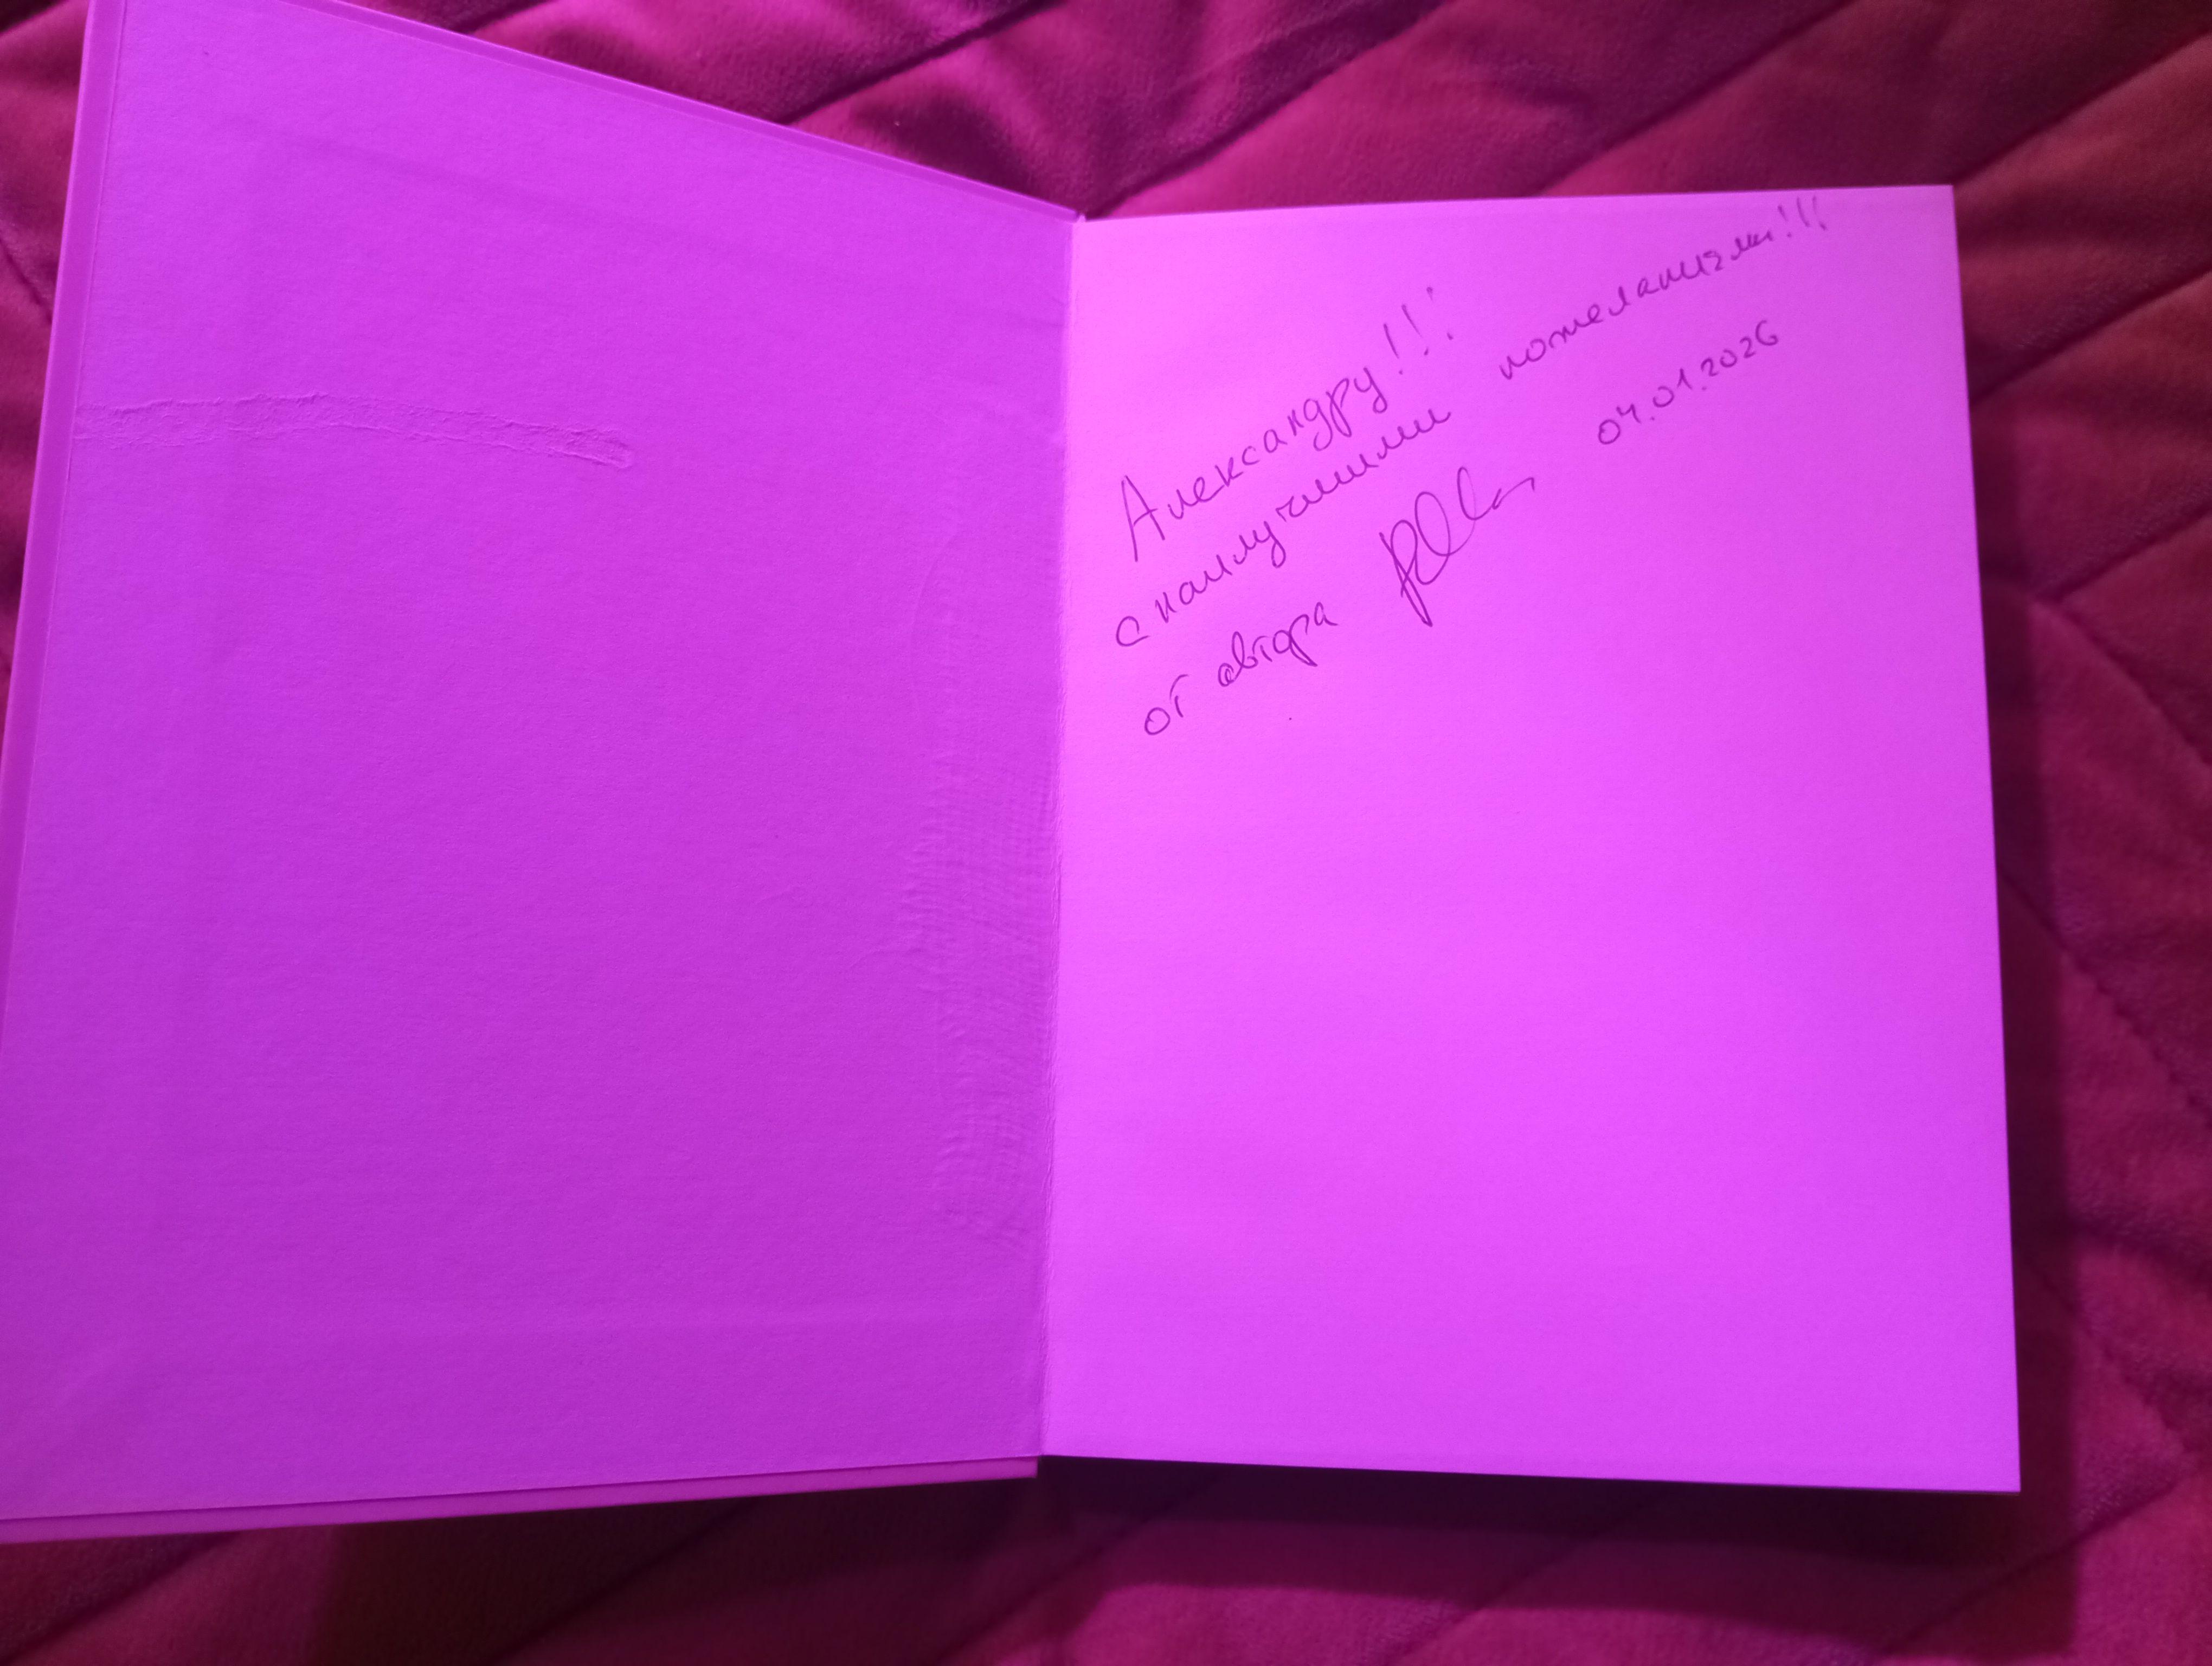 Александру!!!
с наилучшими пожеланиями!!!
от автора 04.01.2026